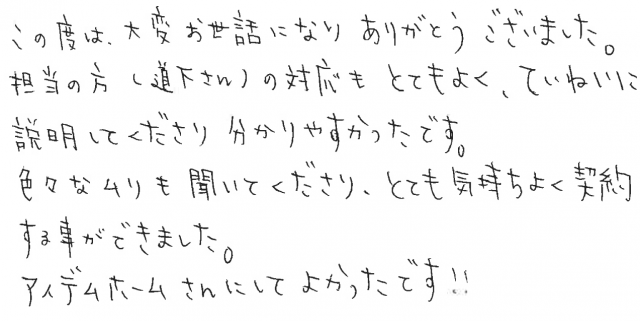 この度は、大変お世話になりありがとうございました。
担当の方(道下さん)の対応もとてもよく、ていねいに
説明してくださり分かりやすかったです。
色々なムリも聞いてくださり、とても気持ちよく契約
する事ができました。
アイデムホームさんにしてよかったです!!